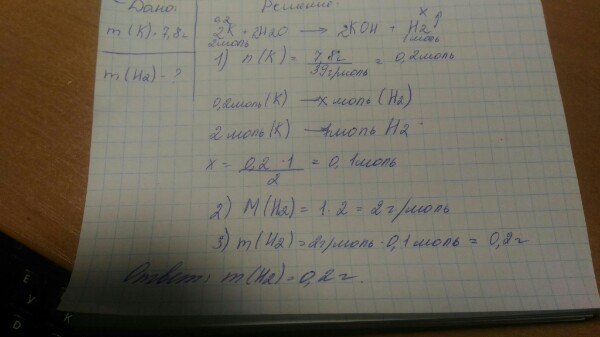 Дано:
m(K)=7,8г
m(H2) - ?
Решение:
0,2 x
2K + 2H2O → 2KOH + H2↑
2моль 1моль
1) n(K) = 7,8г / 39г/моль = 0,2моль
0,2моль(K) → x моль (H2)
2 моль(K) → 1моль H2
x = 0,2 · 1 / 2 = 0,1моль
2) M(H2) = 1 · 2 = 2г/моль
3) m(H2) = 2г/моль · 0,1 моль = 0,2г
Ответ: m(H2) = 0,2г.